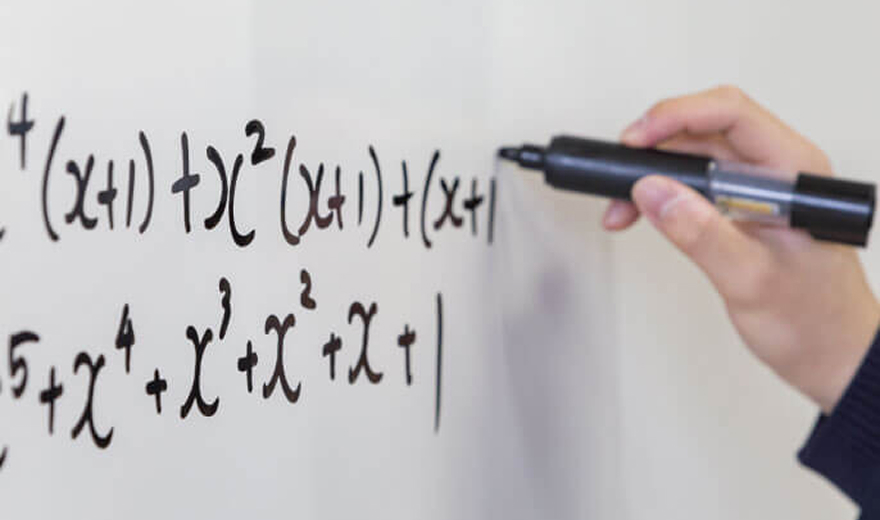 ⁴(x+1)+x²(x+1)+(x+1
⁵+x⁴+x³+x²+x+1